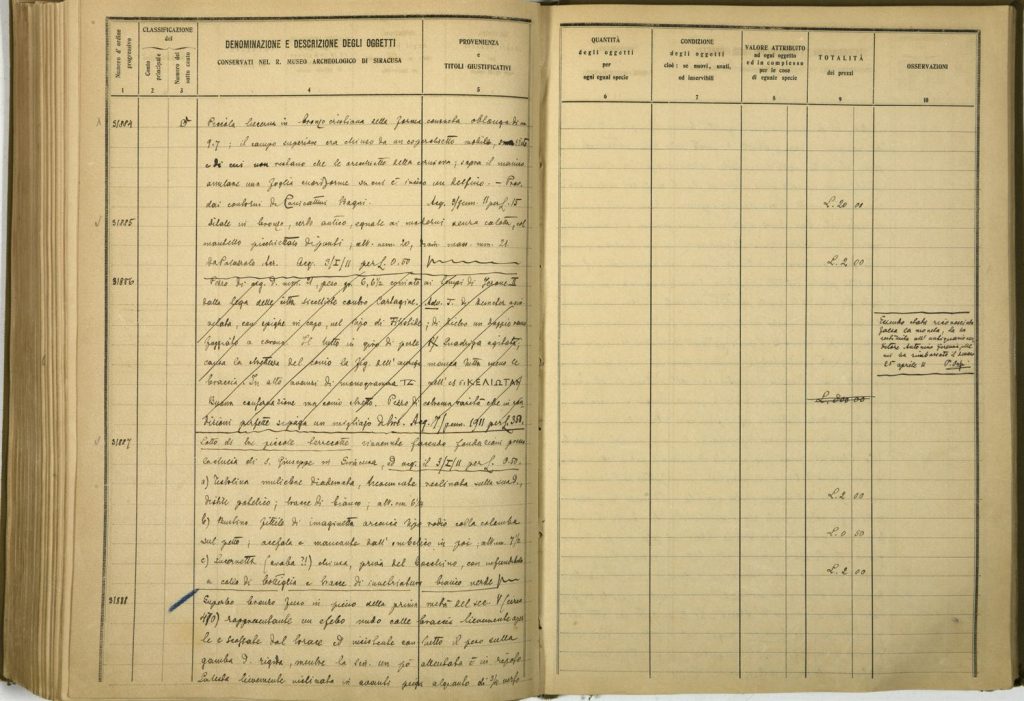 Numero d'ordine progressivo
CLASSIFICAZIONE
del
Conto principale
Numero del sotto conto
DENOMINAZIONE E DESCRIZIONE DEGLI OGGETTI
CONSERVATI NEL R. MUSEO ARCHEOLOGICO DI SIRACUSA
PROVENIENZA
e
TITOLI GIUSTIFICATIVI
1 2 3 4 5
31884 Piccola lucerna in bronzo cristiana della forma consueta oblunga di cm
9.7; il campo superiore era chiuso da un coperchietto mobile,
e di cui non restano che le della cerniera; sopra il manico
una foglia cuoriforme su cui è inciso un delfino. — Prov.
dai contorni di Canicattini Bagni. Acq. 3/genn. 11 per L. 15
31885 Ditale in bronzo, certo antico, eguale ai moderni senza calotta, col
mantello picchiettato di punti; alt. mm. 20, diam. mass. mm. 21
Da Palazzolo Acr. Acq. 3/I/11 per L. 0.50
31886 Pezzo di arg. d. mm. peso gr. 6,6 1/2 coniato ai tempi di Jerone II
dalla lega delle città siceliote contro Cartagine. Adv. T. di Demeter
velata, con spighe in capo, nel tipo di Filistide; di dietro un
a corona. Il tutto in giro di perle. Rf Quadriga agitata;
causa la del conio la fig. dell'auriga manca tutta meno le
braccia. In alto avanzi di monogramma nell'es. ΣΙΚΕΛΙΩΤΑΝ
Buona conservazione ma conio stretto. Pezzo di estrema rarità che in
perfette si paga un migliajo di lire. Acq. 7/genn. 1911 per L. 350.
31887 Lotto di tre piccole terrecotte rinvenute facendo fondazioni presso
la chiesa di S. Giuseppe in Siracusa, ed acq. il 3/I/11 per L. 0.50.
a) Testolina muliebre diademata, reclinata sulla
tracce di bianco; alt. cm 6 1/2
b) Bustino fittile di imaginetta arcaica tipo rodio colla colomba
sul petto; acefala e mancante dall'ombelico in poi; alt. cm. 7 1/2
c) Lucernetta (araba?!) chiusa, priva del becchino, con
a collo di bottiglia e tracce di bianco verde
31888 Superbo bronzo fuso in pieno della prima metà del sec. V (circa
470) rappresentante un efebo nudo colle braccia lievemente aper-
te e scostate dal torace ed insistente con tutto il peso sulla
gamba d. rigida, mentre la sin. un pò allentata è in riposo.
La testa lievemente inclinata in avanti piega alquanto di 3/4 verso
QUANTITÀ
degli oggetti
per
ogni egual specie
CONDIZIONE
degli oggetti
cioè: se nuovi, usati,
od inservibili
VALORE ATTRIBUITO
ad ogni oggetto
ed in complesso
per le cose
di eguale specie
TOTALITÀ
dei prezzi
OSSERVAZIONI
6 7 8 9 10
L. 20 00
L. 2 00
Essendo stata riconosciuta
falsa la moneta, la ho
restituita all'antiquario
Antonino che
mi ha rimborsato il denaro
25 aprile 11 P. Orsi
L. 800 00
L. 2 00
L. 0 50
L. 2 00